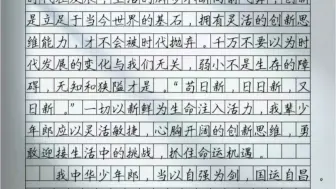 是立足于当今世界的基石，拥有灵活的创新思
维能力，才不会被时代抛弃。千万不要以为时
代发展的变化与我们无关，弱小不是生存的障
碍，无知和狭隘才是。“苟日新，日日新，又
日新。”一切以新鲜为生命注入活力，我辈少
年郎应以灵活敏捷，心胸开阔的创新思维，勇
敢迎接生活中的挑战，抓住命运机遇。
我中华少年郎，当以自强为剑，国运自昌